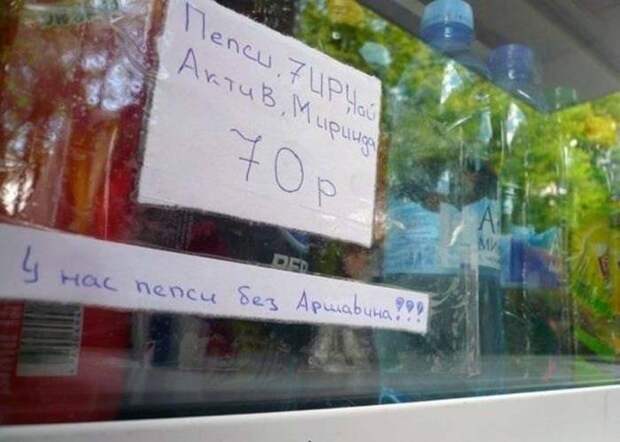 Пепси, 7ИР, Чай
Актив, Миринда
70р
У нас пепси без Аршавина!!!